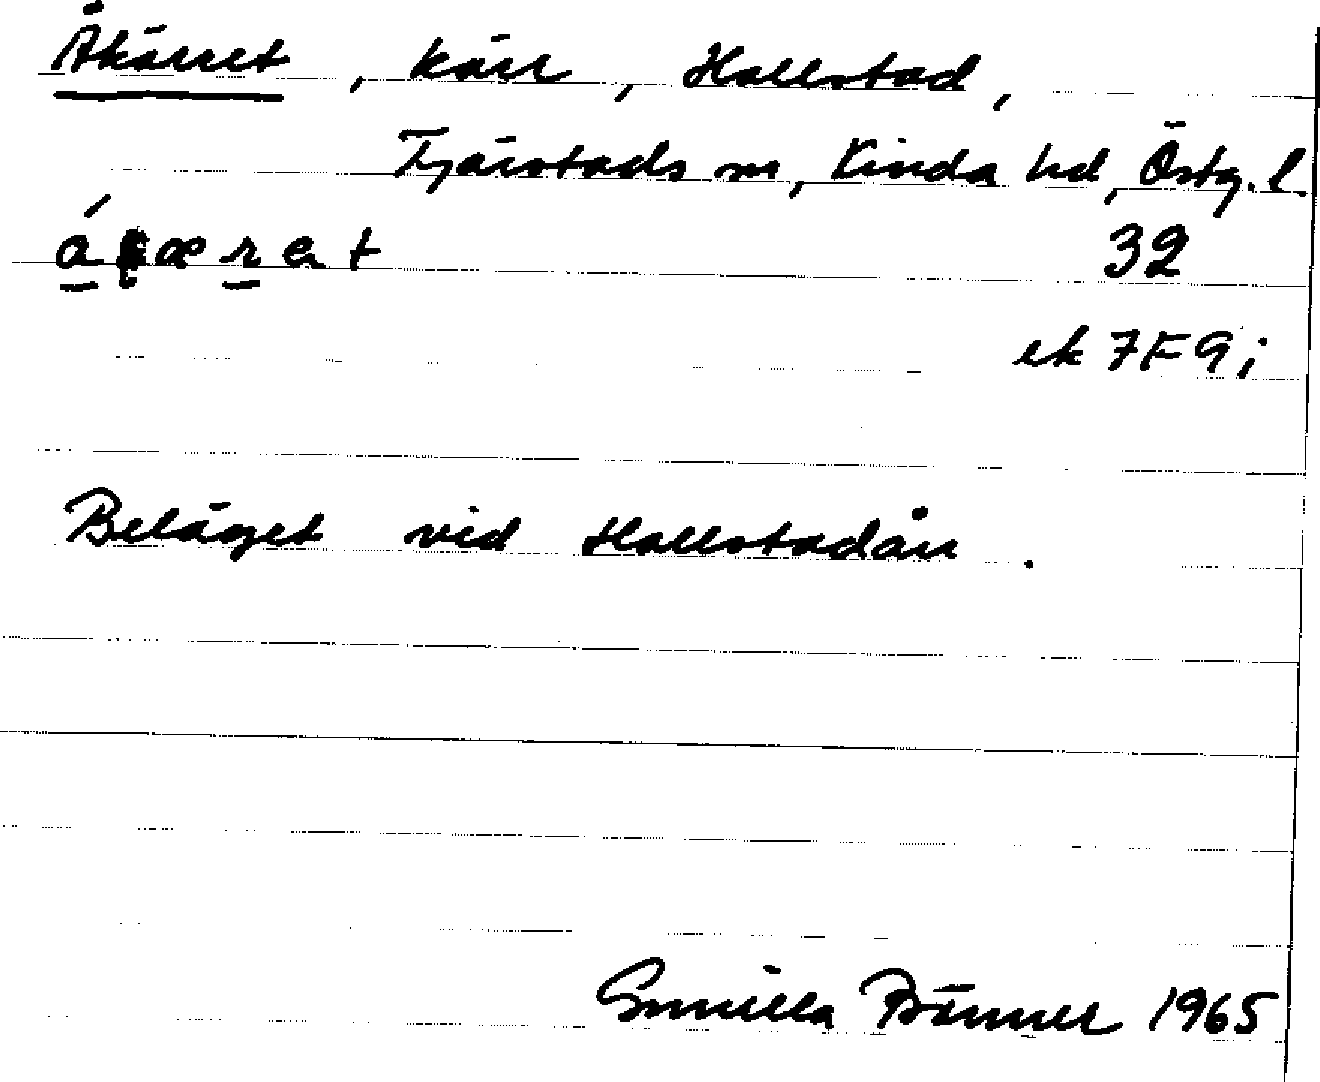 Åkärret, kärr, Hallstad,
Tjärstads sn, Kinda hd, Östg. l.
32
ek 7F 9i
Beläget vid Hallstadån.
Gunilla Bänner 1965